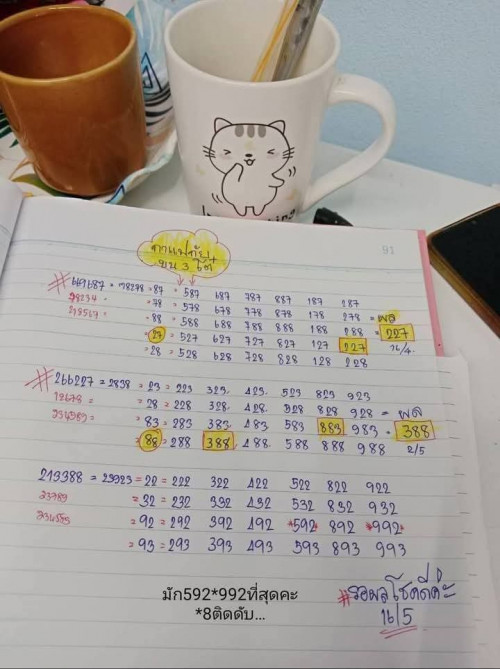 91
บน 3 ตัว
#447687 = 78278 = 87 = 587 687 787 887 187 287
= 78 = 578 678 778 878 178 278 = ผล
= 88 = 588 688 788 888 188 288 = 227
= 27 = 527 627 727 827 127 227 16/4
= 28 = 528 628 728 828 128 228
#266227 = 2838 = 23 = 223 323 423 523 823 923
12678 = = 28 = 228 328 428 528 828 928 = ผล
= 83 = 283 383 483 583 883 983 = 388
= 88 = 288 388 488 588 888 988 2/5
213388 = 23923 = 22 = 222 322 422 522 822 922
23789 = 32 = 232 332 432 532 832 932
= 92 = 292 392 492 *592 892 *992*
= 93 = 293 393 493 593 893 993
มัก592*992ที่สุดคะ
*8ติดดับ...
#รอผลโชคดีค่ะ
16/5